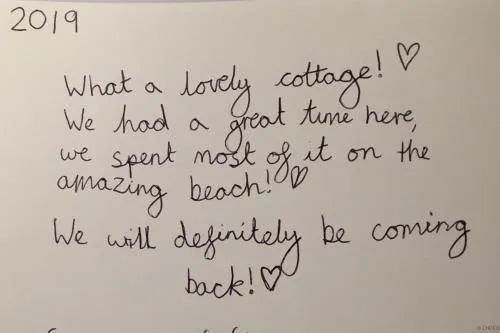 2019
What a lovely cottage! ♡
We had a great time here,
we spent most of it on the
amazing beach! ♡
We will definitely be coming
back! ♡